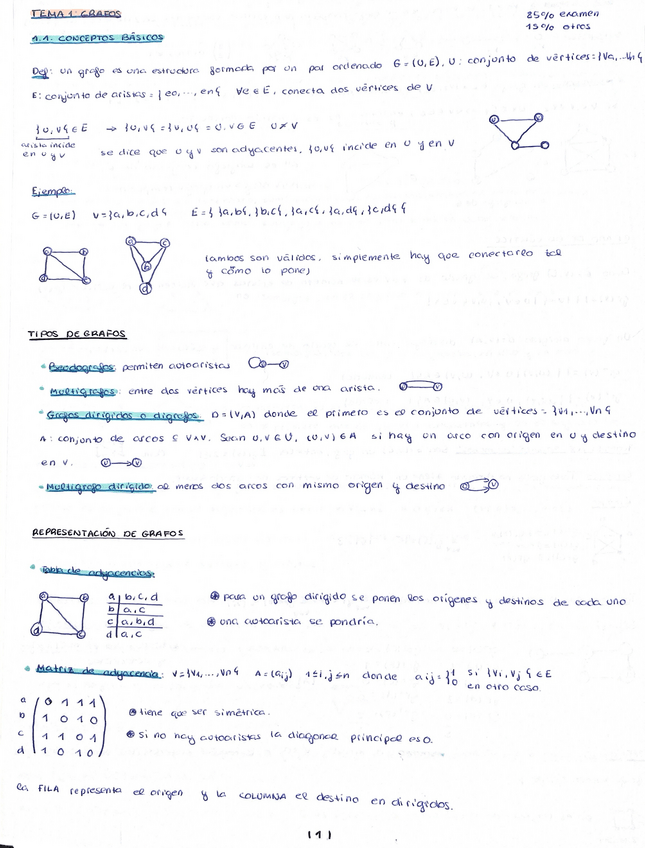 TEMA 1: GRAFOS
85% examen
15% otros
1.1. CONCEPTOS BÁSICOS
Def: un grafo es una estructura formada por un par ordenado G=(V,E), V: conjunto de vértices={v1,...,vn}
E: conjunto de aristas={e0,...,en} ∀e∈E, conecta dos vértices de V
{u,v}∈E → {u,v}={v,u}=u.v∈E u≠v
arista incide
en u y v
se dice que u y v son adyacentes, {u,v} incide en u y en v
Ejemplo:
G=(V,E) V={a,b,c,d} E={{a,b},{b,c},{a,c},{a,d},{c,d}}
a b
d c
a c
b
d
(ambos son válidos, simplemente hay que conectarlo tal
y cómo lo pone)
TIPOS DE GRAFOS
• Pseudografos: permiten autoaristas
• Multigrafos: entre dos vértices hay más de una arista.
• Grafos dirigidos o digrafos: D=(V,A) donde el primero es el conjunto de vértices={v1,...,vn}
A: conjunto de arcos ⊆ V×V. Sean u,v∈V, (u,v)∈A si hay un arco con origen en u y destino
en v. u v
• Multigrafo dirigido: al menos dos arcos con mismo origen y destino u v
REPRESENTACIÓN DE GRAFOS
• Tabla de adyacencias:
a b
d c
a | b, c, d
b | a, c
c | a, b, d
d | a, c
⊛ para un grafo dirigido se ponen los orígenes y destinos de cada uno
⊛ una autoarista se pondría.
• Matriz de adyacencia: V={v1,...,vn} A=(aij) 1≤i,j≤n donde aij={1 si {vi,vj}∈E
0 en otro caso.
a 0 1 1 1
b 1 0 1 0
c 1 1 0 1
d 1 0 1 0
⊛ tiene que ser simétrica.
⊛ si no hay autoaristas la diagonal principal es 0.
la FILA representa el origen y la COLUMNA el destino en dirigidos.
|1|